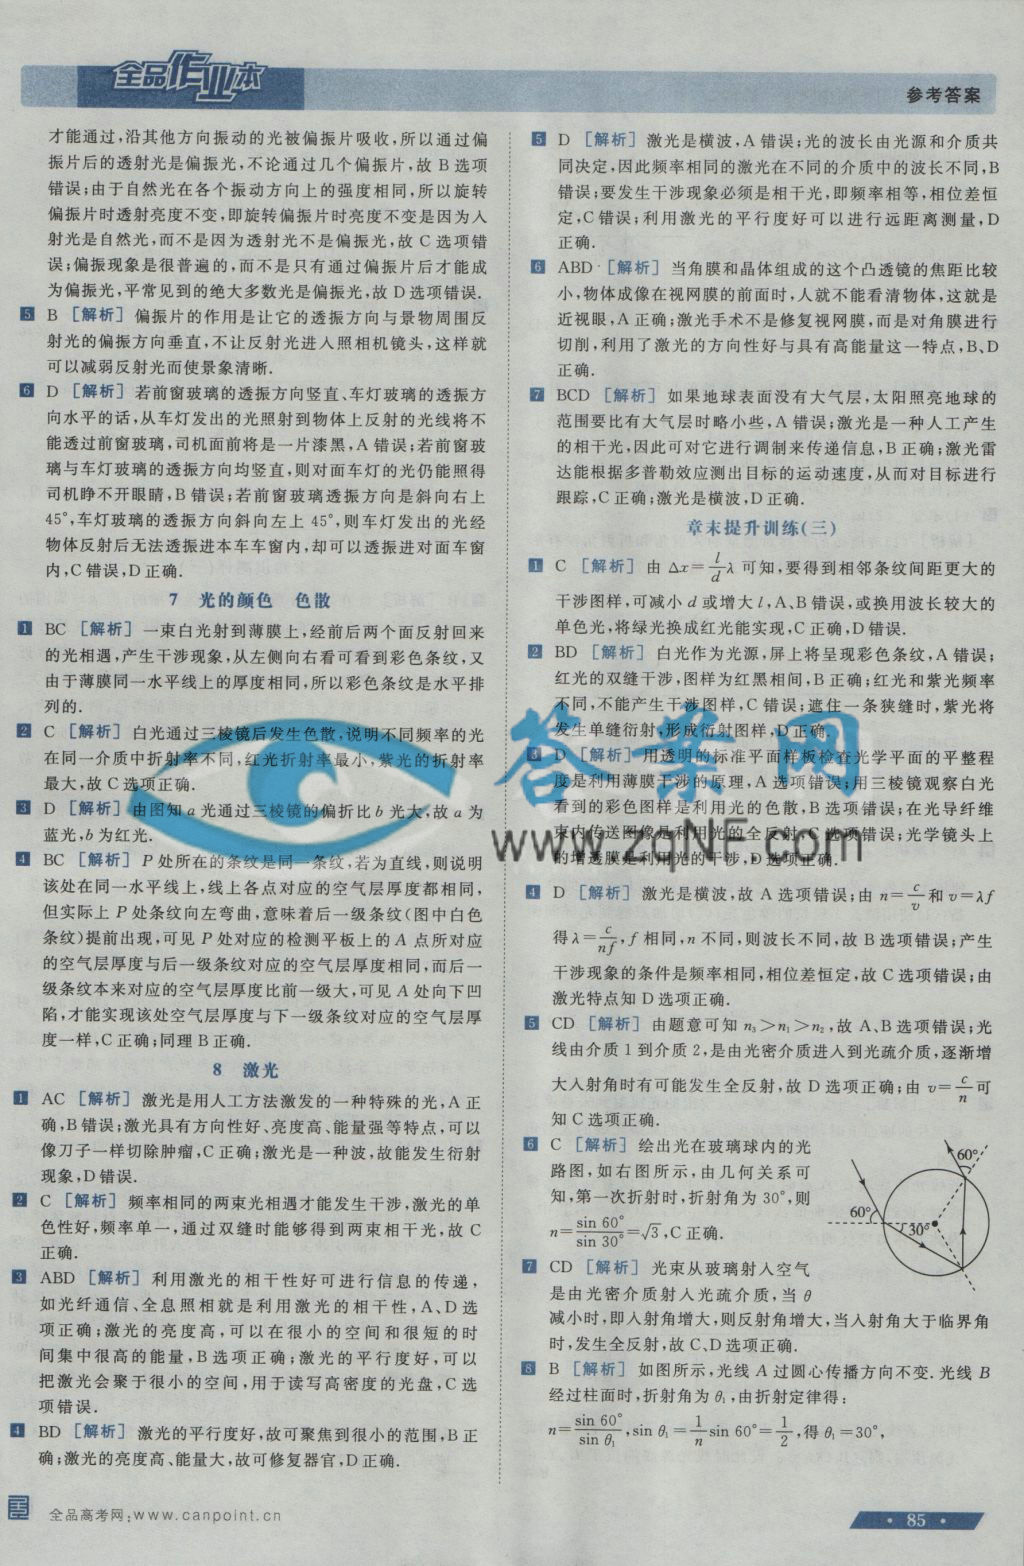 全品作业本
参考答案
才能通过,沿其他方向振动的光被偏振片吸收,所以通过偏
振片后的透射光是偏振光,不论通过几个偏振片,故 B 选项
错误;由于自然光在各个振动方向上的强度相同,所以旋转
偏振片时透射亮度不变,即旋转偏振片时亮度不变是因为入
射光是自然光,而不是因为透射光不是偏振光,故 C 选项错
误;偏振现象是很普遍的,而不是只有通过偏振片后才能成
为偏振光,平常见到的绝大多数光是偏振光,故 D 选项错误.
5 B [解析] 偏振片的作用是让它的透振方向与景物周围反
射光的偏振方向垂直,不让反射光进入照相机镜头,这样就
可以减弱反射光而使景象清晰.
6 D [解析] 若前窗玻璃的透振方向竖直、车灯玻璃的透振方
向水平的话,从车灯发出的光照射到物体上反射的光线将不
能透过前窗玻璃,司机面前将是一片漆黑,A 错误;若前窗玻
璃与车灯玻璃的透振方向均竖直,则对面车灯的光仍能照得
司机睁不开眼睛,B 错误;若前窗玻璃透振方向是斜向右上
45°,车灯玻璃的透振方向斜向左上 45°,则车灯发出的光经
物体反射后无法透振进本车车窗内,却可以透振进对面车窗
内,C 错误,D 正确.
7 光的颜色 色散
1 BC [解析] 一束白光射到薄膜上,经前后两个面反射回来
的光相遇,产生干涉现象,从左侧向右看可看到彩色条纹,又
由于薄膜同一水平线上的厚度相同,所以彩色条纹是水平排
列的.
2 C [解析] 白光通过三棱镜后发生色散,说明不同频率的光
在同一介质中折射率不同,红光折射率最小,紫光的折射率
最大,故 C 选项正确.
3 D [解析] 由图知 a 光通过三棱镜的偏折比 b 光大,故 a 为
蓝光,b 为红光.
4 BC [解析] P 处所在的条纹是同一条纹,若为直线,则说明
该处在同一水平线上,线上各点对应的空气层厚度都相同,
但实际上 P 处条纹向左弯曲,意味着后一级条纹(图中白色
条纹)提前出现,可见 P 处对应的检测平板上的 A 点所对应
的空气层厚度与后一级条纹对应的空气层厚度相同,而后一
级条纹本来对应的空气层厚度比前一级大,可见 A 处向下凹
陷,才能实现该处空气层厚度与下一级条纹对应的空气层厚
度一样,C 正确;同理 B 正确.
8 激光
1 AC [解析] 激光是用人工方法激发的一种特殊的光,A 正
确,B 错误;激光具有方向性好、亮度高、能量强等特点,可以
像刀子一样切除肿瘤,C 正确;激光是一种波,故能发生衍射
现象,D 错误.
2 C [解析] 频率相同的两束光相遇才能发生干涉,激光的单
色性好,频率单一,通过双缝时能够得到两束相干光,故 C
正确.
3 ABD [解析] 利用激光的相干性好可进行信息的传递,
如光纤通信、全息照相就是利用激光的相干性,A、D 选
项正确;激光的亮度高,可以在很小的空间和很短的时
间集中很高的能量,B 选项正确;激光的平行度好,可以
把激光会聚于很小的空间,用于读写高密度的光盘,C 选
项错误.
4 BD [解析] 激光的平行度好,故可聚焦到很小的范围,B 正
确;激光的亮度高、能量大,故可修复器官,D 正确.
5 D [解析] 激光是横波,A 错误;光的波长由光源和介质共
同决定,因此频率相同的激光在不同的介质中的波长不同,B
错误;要发生干涉现象必须是相干光,即频率相等,相位差恒
定,C 错误;利用激光的平行度好可以进行远距离测量,D
正确.
6 ABD [解析] 当角膜和晶体组成的这个凸透镜的焦距比较
小,物体成像在视网膜的前面时,人就不能看清物体,这就是
近视眼,A 正确;激光手术不是修复视网膜,而是对角膜进行
切削,利用了激光的方向性好与具有高能量这一特点,B、D
正确.
7 BCD [解析] 如果地球表面没有大气层,太阳照亮地球的
范围要比有大气层时略小些,A 错误;激光是一种人工产生
的相干光,因此可对它进行调制来传递信息,B 正确;激光雷
达能根据多普勒效应测出目标的运动速度,从而对目标进行
跟踪,C 正确;激光是横波,D 正确.
章末提升训练(三)
1 C [解析] 由 Δx=l/d λ 可知,要得到相邻条纹间距更大的
干涉图样,可减小 d 或增大 l,A、B 错误,或换用波长较大的
单色光,将绿光换成红光能实现,C 正确,D 错误.
2 BD [解析] 白光作为光源,屏上将呈现彩色条纹,A 错误;
红光的双缝干涉,图样为红黑相间,B 正确;红光和紫光频率
不同,不能产生干涉图样,C 错误;遮住一条狭缝时,紫光将
发生单缝衍射,形成衍射图样,D 正确.
3 D [解析] 用透明的标准平面样板检查光学平面的平整程
度是利用薄膜干涉的原理,A 选项错误;用三棱镜观察白光
看到的彩色图样是利用光的色散,B 选项错误;在光导纤维
束内传送图像是利用光的全反射,C 选项错误;光学镜头上
的增透膜是利用光的干涉,D 选项正确.
4 D [解析] 激光是横波,故 A 选项错误;由 n=c/v 和 v=λf
得 λ=c/nf,f 相同,n 不同,则波长不同,故 B 选项错误;产生
干涉现象的条件是频率相同,相位差恒定,故 C 选项错误;由
激光特点知 D 选项正确.
5 CD [解析] 由题意可知 n₃>n₁>n₂,故 A、B 选项错误;光
线由介质 1 到介质 2,是由光密介质进入到光疏介质,逐渐增
大入射角时有可能发生全反射,故 D 选项正确;由 v=c/n 可
知 C 选项正确.
6 C [解析] 绘出光在玻璃球内的光
路图,如右图所示,由几何关系可
知,第一次折射时,折射角为 30°,则
n=sin 60°/sin 30°=√3,C 正确.
60°
60°
30°
7 CD [解析] 光束从玻璃射入空气
是由光密介质射入光疏介质,当 θ
减小时,即入射角增大,则反射角增大,当入射角大于临界角
时,发生全反射,故 C、D 选项正确.
8 B [解析] 如图所示,光线 A 过圆心传播方向不变.光线 B
经过柱面时,折射角为 θ₁,由折射定律得:
n=sin 60°/sin θ₁,sin θ₁=1/n sin 60°=1/2,得 θ₁=30°,
答案网
www.zqNF.com
全品高考网:www.canpoint.cn
• 85 •